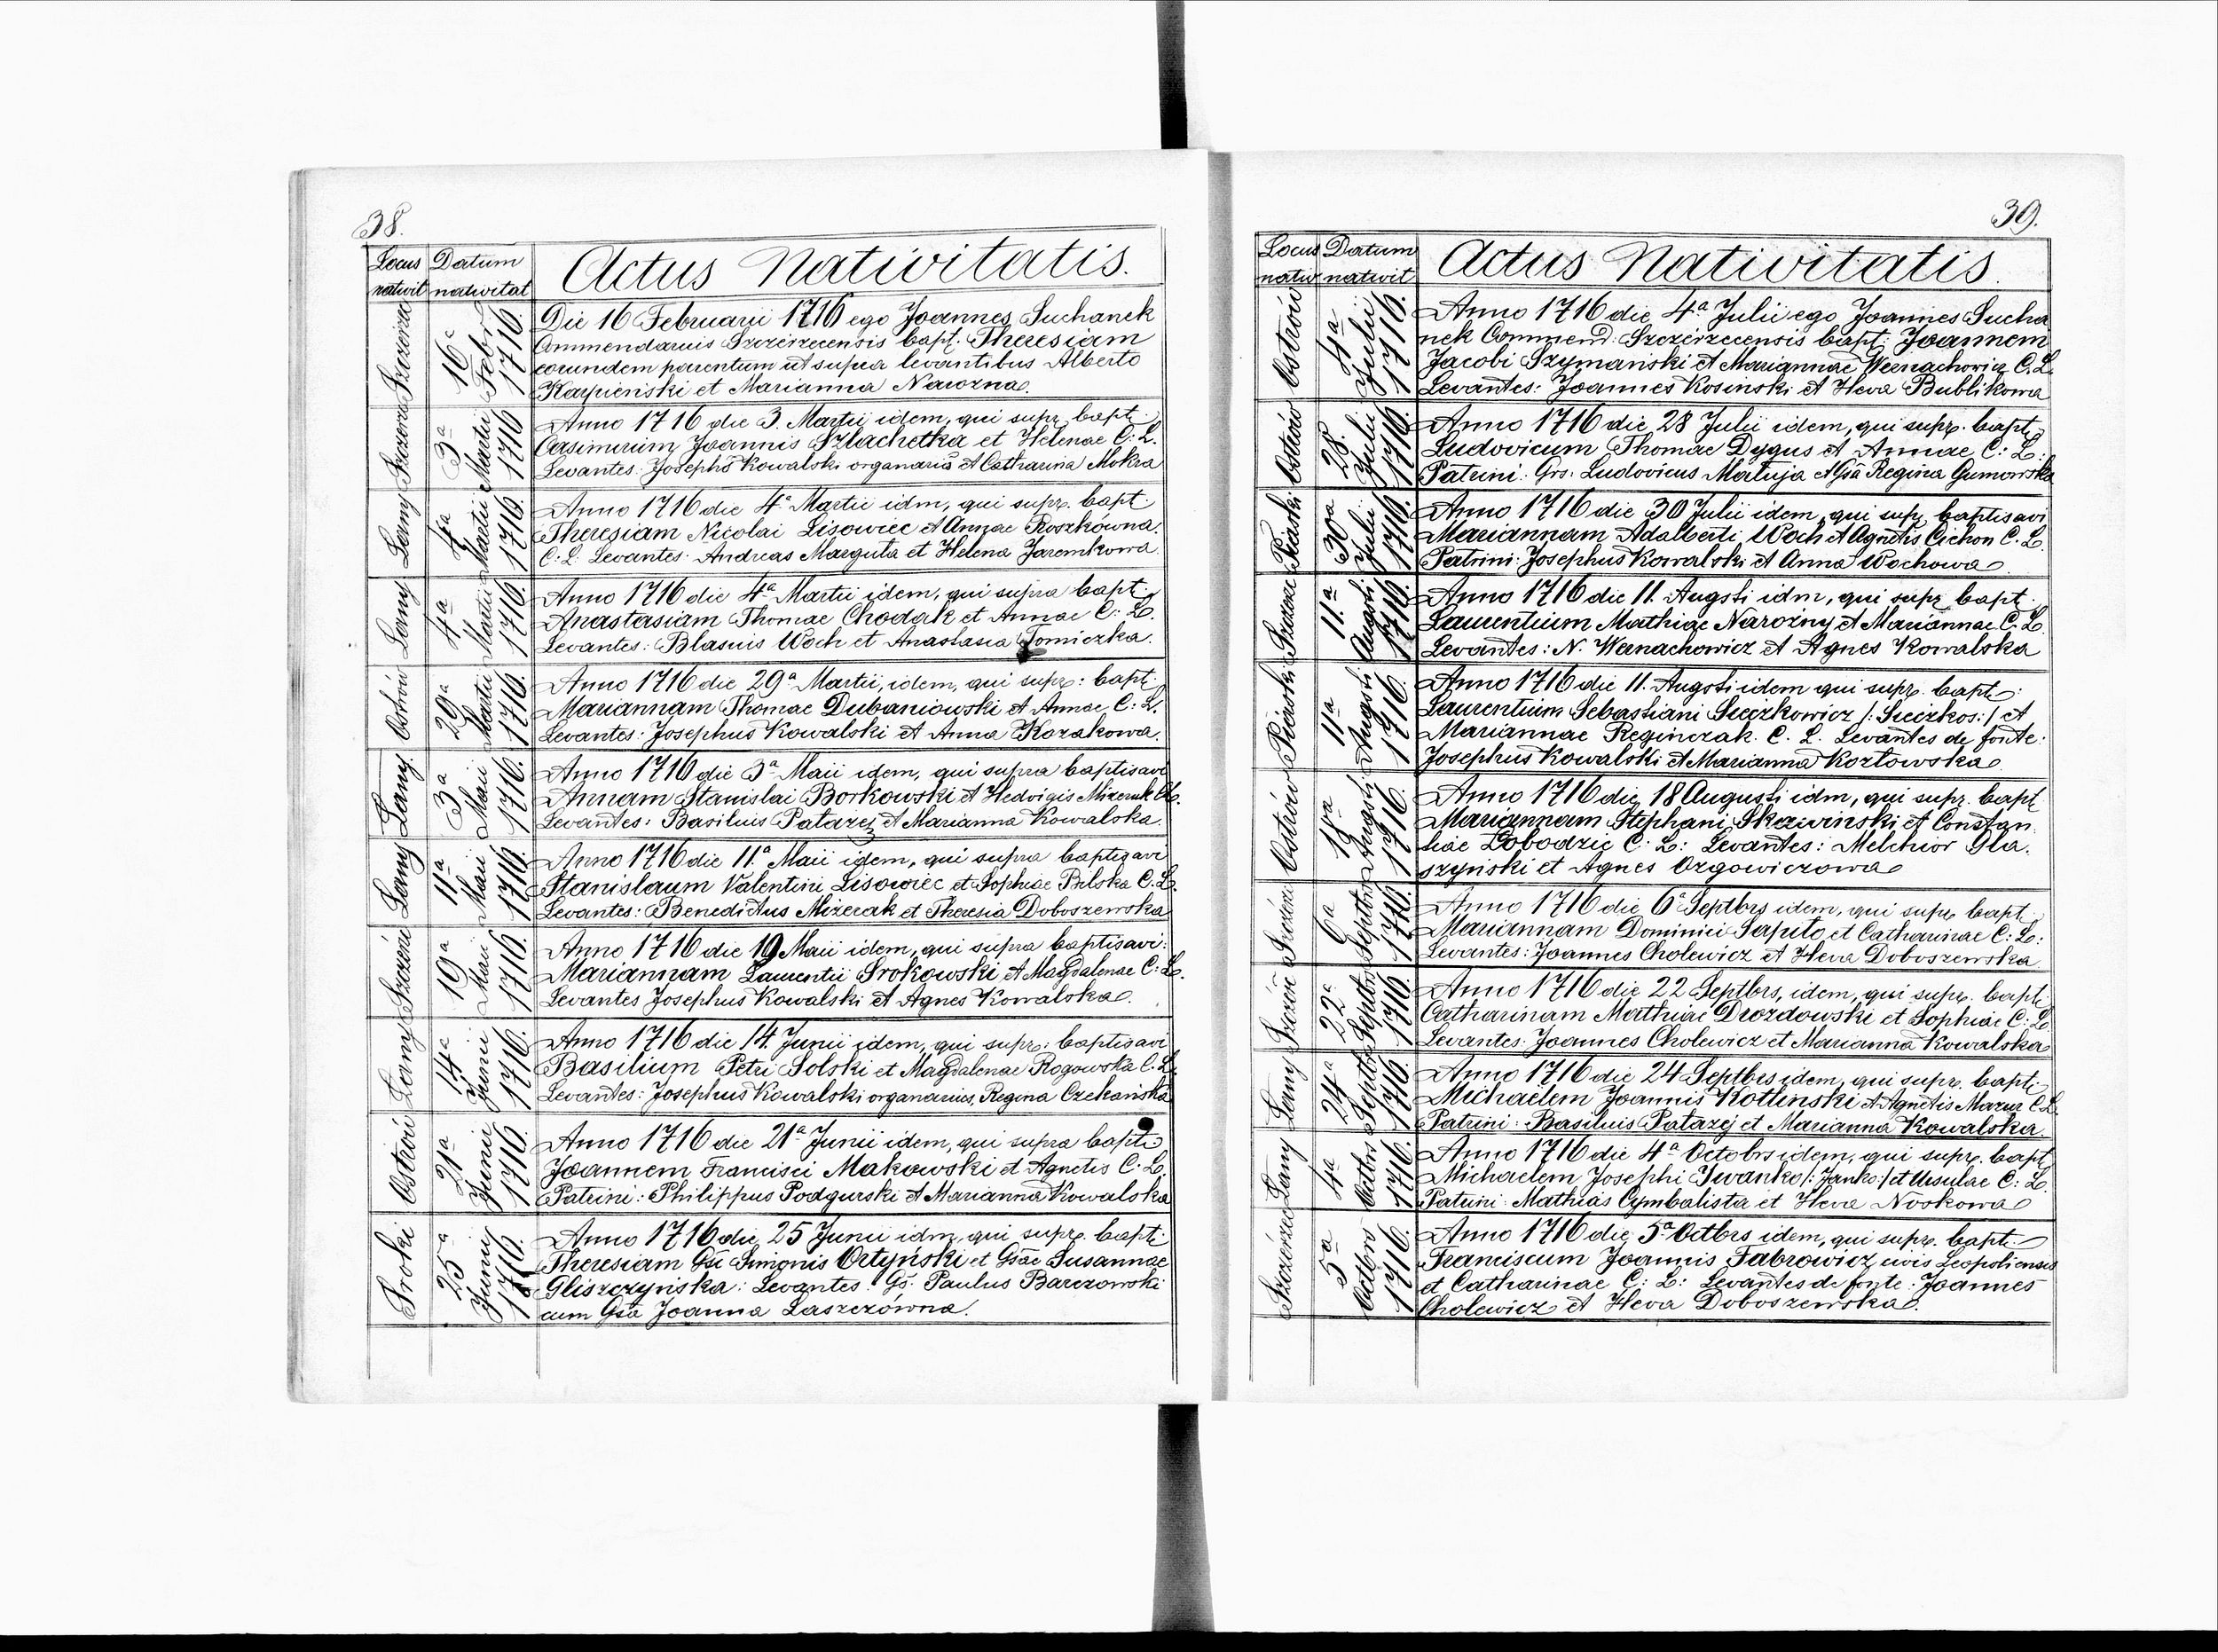 38.
Locus nativit
Datum nativitat
Actus Nativitatis.
16a Febr 1716.
Die 16 Februarii 1716 ego Joannes Suchanek
Commendarius Szczerzecensis bapt. Theresiam
eorundem parentum ut supra levantibus Alberto
Karpieński et Marianna Narozna
3a Martii 1716
Anno 1716 die 3. Martii idem, qui supr. bapt.
Casimirum Joannis Szlachetka et Helenae C. L.
Levantes: Josephs Kowalski organaris et Catharina Mokra
Łany
4a Martii 1716.
Anno 1716 die 4a Martii idm, qui supr. bapt.
Theresiam Nicolai Lisowiec et Annae Roszkowna.
C. L. Levantes: Andreas Marguta et Helena Jaremkowa
Łany
4a Martii 1716.
Anno 1716 die 4a Martii idem, qui supra bapt.
Anastasiam Thomae Chodak et Annae C: L.
Levantes: Blasius Woch et Anastasia Tomiczka.
Ostrów
29a Martii 1716.
Anno 1716 die 29a Martii, idem, qui supr: bapt:
Mariannam Thomae Dubaniowski et Annae C: L.
Levantes: Josephus Kowalski et Anna Kozakowa.
Łany
3a Maii 1716.
Anno 1716 die 3a Maii idem, qui supra baptisavi
Annam Stanislai Borkowski et Hedvigis Mizerak C.L.
Levantes: Basilius Patazej et Marianna Kowalska
Łany
11a Maii 1716.
Anno 1716 die 11a Maii idem, qui supra baptisavi
Stanislaum Valentini Lisowiec et Sophiae Bilska C. L.
Levantes: Benedictus Mizerak et Theresia Doboszewska
19a Maii 1716.
Anno 1716 die 19 Maii idem, qui supra baptisavi:
Mariannam Laurentii Srokowski et Magdalenae C: L.
Levantes Josephus Kowalski et Agnes Kowalska.
Łany
14a Junii 1716.
Anno 1716 die 14. Junii idem, qui supr: baptisavi
Basilium Petri Solski et Magdalenae Rogowska C. L.
Levantes: Josephus Kowalski organarius, Regina Czekańska
Ostrów
21a Junii 1716.
Anno 1716 die 21a Junii idem, qui supra bapt:
Joannem Francisci Makowski et Agnetis C: L.
Patrini: Philippus Podgurski et Marianna Kowalska
Sroki
25a Junii 1716.
Anno 1716 die 25 Junii idm, qui supr. bapt:
Theresiam Gsi Simonis Ortyński et Gsae Susannae
Gliszczyńska: Levantes: Gs. Paulus Barczowski
cum Gsa Joanna Laszczówna.
39.
Locus nativ
Datum nativit
Actus Nativitatis.
Ostrów
4a Julii 1716.
Anno 1716 die 4a Julii ego Joannes Sucha
nek Commend: Szczerzecensis bapt: Joannem
Jacobi Szymański et Mariannae Wernachowicz C. L.
Levantes: Joannes Kosinski et Heva Bublikowa
Ostrów
28. Julii 1716.
Anno 1716 die 28 Julii idem, qui supr. bapt.
Ludovicum Thomae Dygus et Annae C: L:
Patrini: Grs: Ludovicus Matuja et Gsa Regina Gumowska
Piaski
30a Julii 1716.
Anno 1716 die 30 Julii idem, qui supr baptisavi
Mariannam Adalberti Woch et Agnetis Cichon C. L.
Patrini: Josephus Kowalski et Anna Wochowa
11.a Augsti 1716.
Anno 1716 die 11. Augsti idm, qui supr bapt.
Laurentium Mathiae Narozny et Mariannae C. L.
Levantes: N. Wernachowicz et Agnes Kowalska
Piaski
11a Augsti 1716.
Anno 1716 die 11. Augsti idem qui supr. bapt:
Laurentium Sebastiani Sieczkowicz /: Sieczkos:/ et
Mariannae Reginczak. C. L. Levantes de fonte:
Josephus Kowalski et Marianna Kozłowska
Ostrów
18a Augusti 1716.
Anno 1716 die 18 Augusti idm, qui supr. bapt
Mariannam Stephani Skrzwinski et Constan
tiae Łobodzic C: L: Levantes: Melchior Gla
szyński et Agnes Ozgowiczowa
6a Septbr 1716.
Anno 1716 die 6a Septbrs idem, qui supr. bapt:
Mariannam Dominici Sapito et Catharinae C: L:
Levantes: Joannes Cholewicz et Heva Doboszewska
22a Septbr 1716.
Anno 1716 die 22 Septbrs, idem, qui supr. bapt:
Catharinam Mathiae Drozdowski et Sophiae C: L.
Levantes: Joannes Cholewicz et Marianna Kowalska
Łany
24a Septbr 1716.
Anno 1716 die 24 Septbrs idem, qui supr. bapt:
Michaelem Joannis Kotlinski et Agnetis Mazur C.L.
Patrini: Basilius Patazej et Marianna Kowalska.
Łany
4a Octbrs 1716.
Anno 1716 die 4a Octobrs idem, qui supr. bapt
Michaelem Josephi Iwanko /: Janko:/ et Ursulae C: L.
Patrini: Mathias Cymbalista et Heva Noskowa
5a Octbr 1716.
Anno 1716 die 5a Octbrs idem, qui supr. bapt:
Franciscum Joannis Fabrowicz civis Leopoliensis
et Catharinae C: L: Levantes de fonte: Joannes
Cholewicz et Heva Doboszewska.